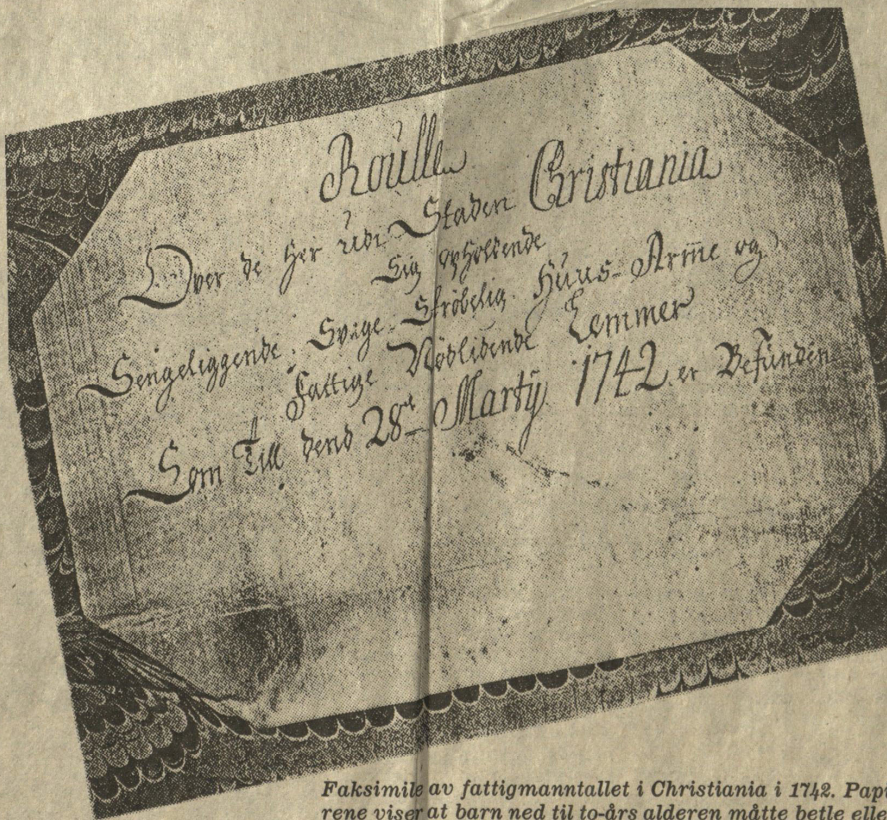 Roulle
Over de Her udi Staden Christiania
Sig opholdende
Sengeliggende, Svage, Skröbelig, Huus-Arme og
Fattige Nödlidende Lemmer
Som Till dend 28de Marty 1742 er Befunden
Faksimile av fattigmanntallet i Christiania i 1742. Papi
rene viser at barn ned til to-års alderen måtte betle elle